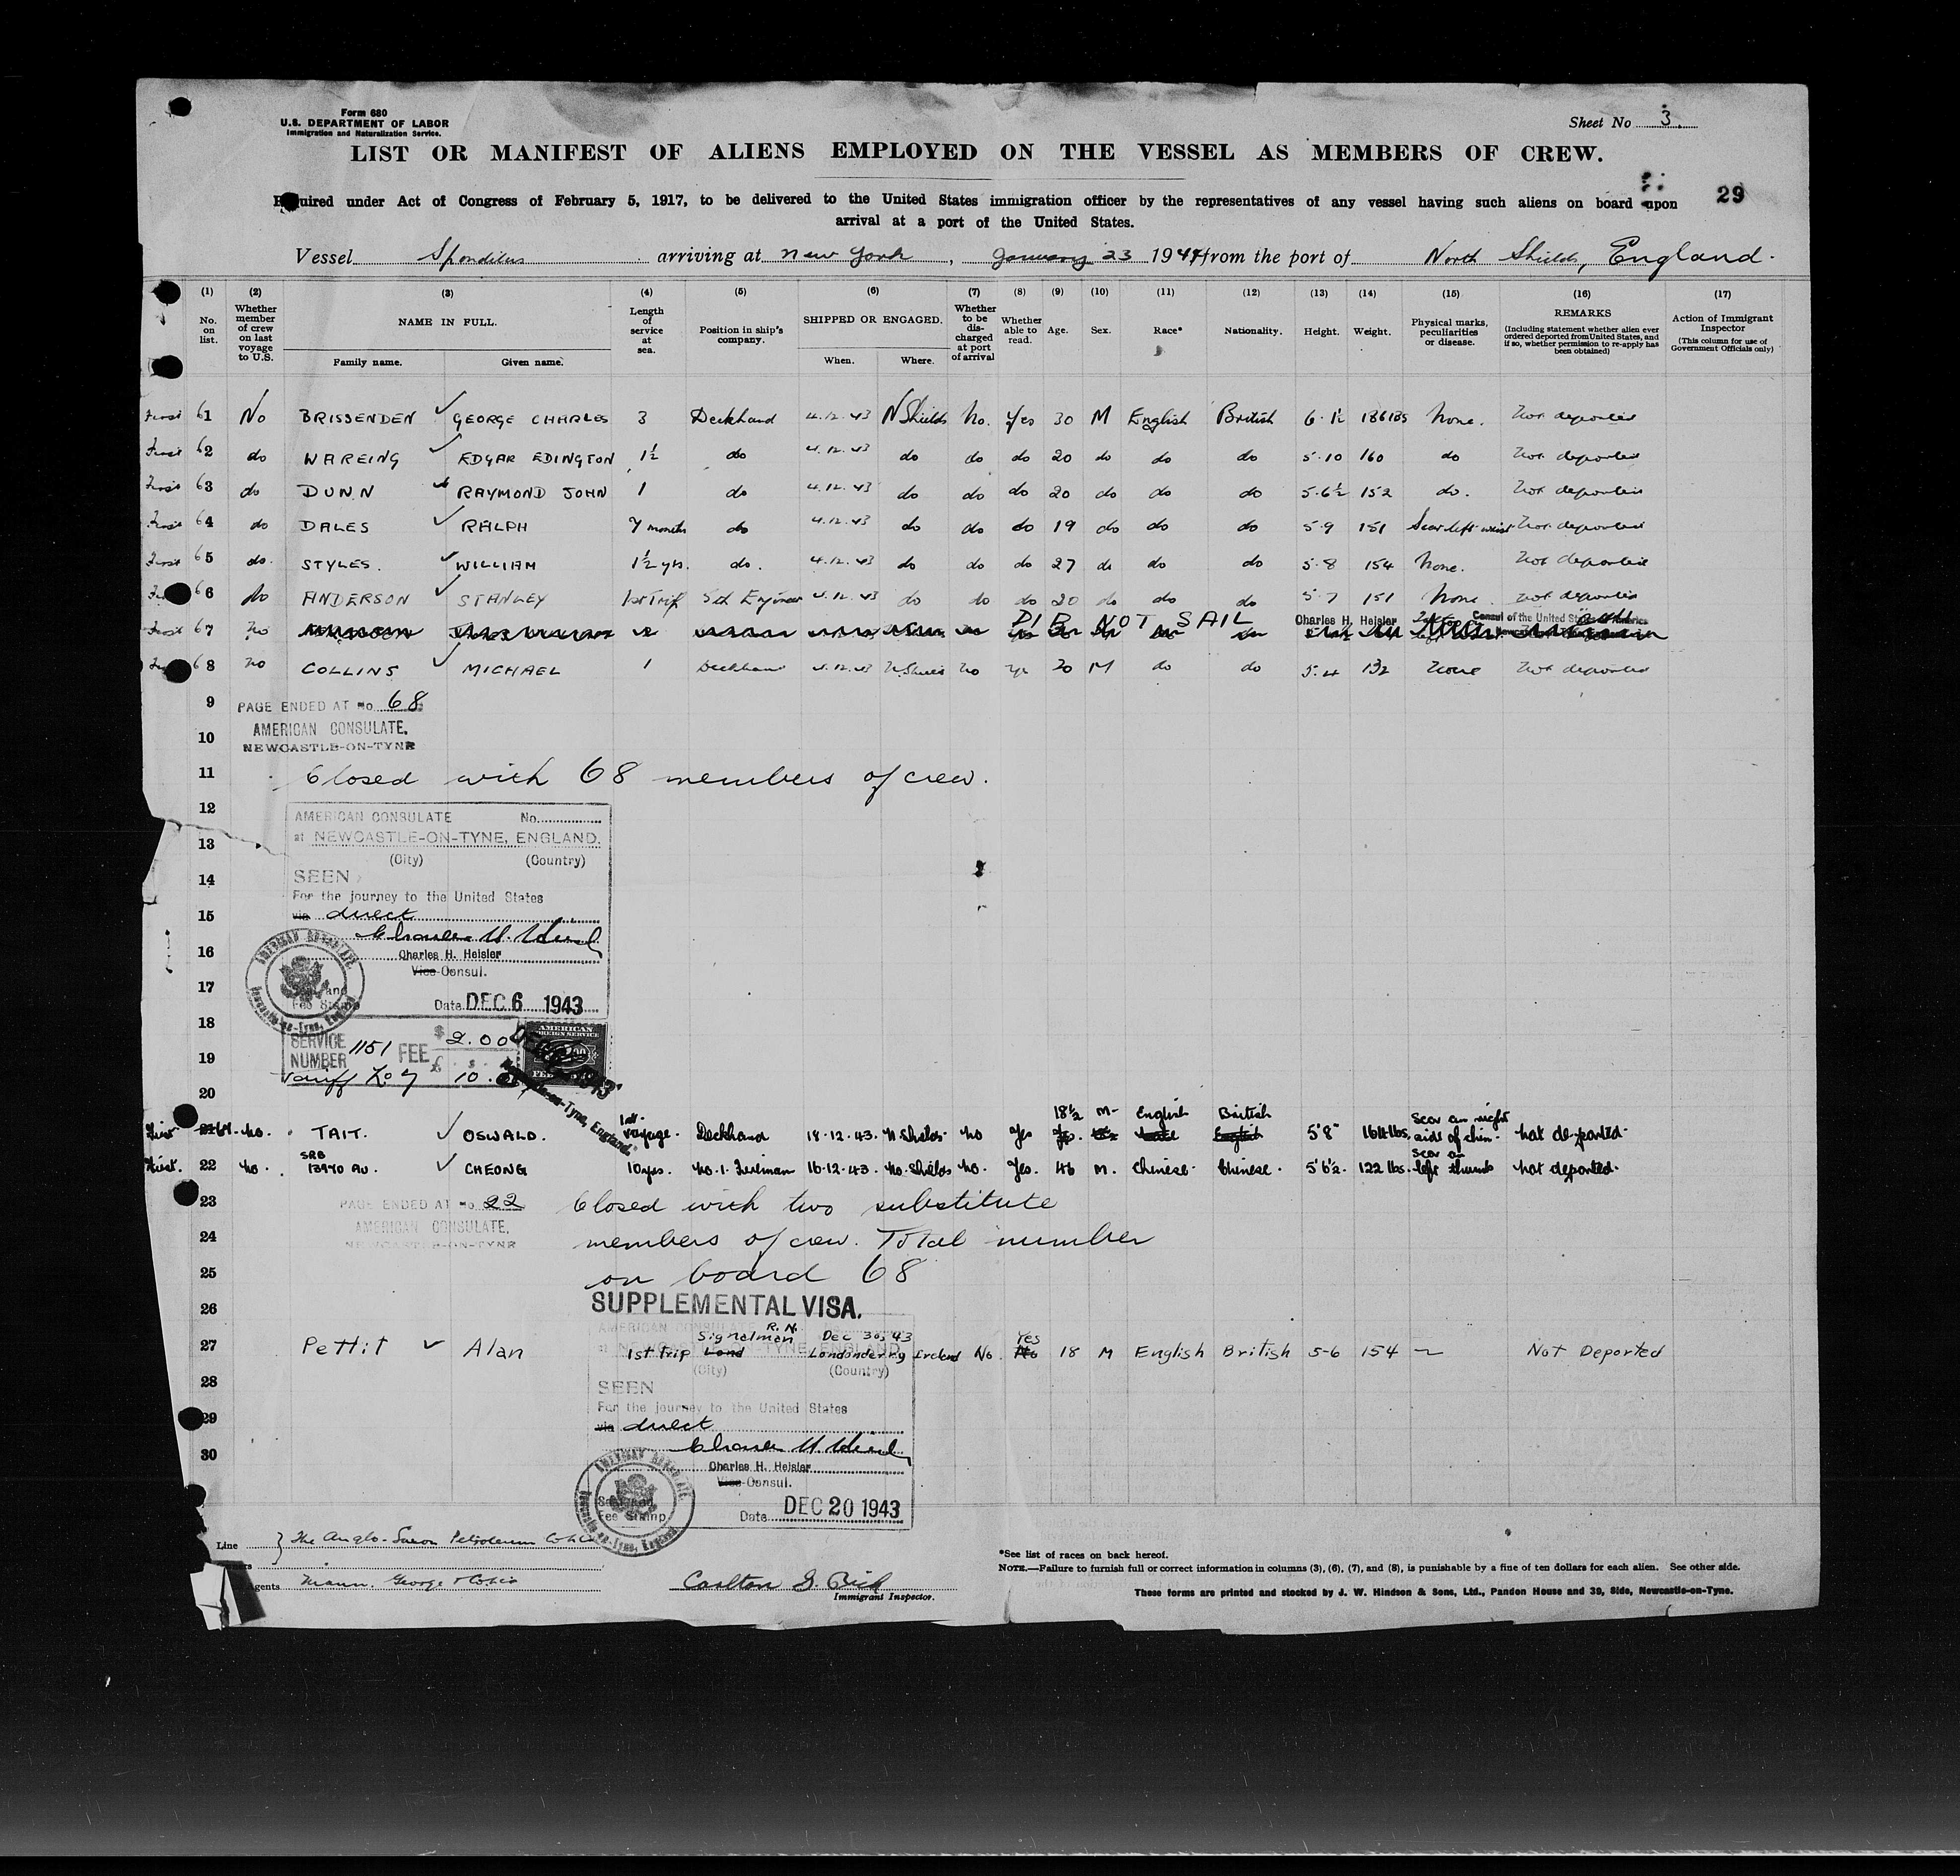 Form 680
U.S. DEPARTMENT OF LABOR
Immigration and Naturalization Service.
Sheet No 3.
LIST OR MANIFEST OF ALIENS EMPLOYED ON THE VESSEL AS MEMBERS OF CREW.
Required under Act of Congress of February 5, 1917, to be delivered to the United States immigration officer by the representatives of any vessel having such aliens on board upon
29
arrival at a port of the United States.
Vessel Spondilus arriving at New York, January 23 1944 from the port of North Shields, England.
(1) (2) (3) (4) (5) (6) (7) (8) (9) (10) (11) (12) (13) (14) (15) (16) (17)
No. on list. Whether member of crew on last voyage to U.S. NAME IN FULL. Length of service at sea. Position in ship's company. SHIPPED OR ENGAGED. Whether to be discharged at port of arrival Whether able to read. Age. Sex. Race* Nationality. Height. Weight. Physical marks, peculiarities or disease. REMARKS (Including statement whether alien ever ordered deported from United States, and if so, whether permission to re-apply has been obtained) Action of Immigrant Inspector (This column for use of Government Officials only)
Family name. Given name. When. Where.
First 61 No BRISSENDEN ✓ GEORGE CHARLES 3 Deckhand 4.12.43 N Shields No. Yes 30 M English British 6·1½ 186 lbs None. Not deported
First 62 do WAREING ✓ EDGAR EDINGTON 1½ do 4.12.43 do do do 20 do do do 5·10 160 do Not deported
First 63 do DUNN RAYMOND JOHN 1 do 4.12.43 do do do 20 do do do 5·6½ 152 do. Not deported
First 64 do DALES ✓ RALPH 7 months do 4.12.43 do do do 19 do do do 5·9 151 Scar left wrist Not deported
First 65 do. STYLES. ✓ WILLIAM 1½ yrs. do. 4.12.43 do do do 27 do do do 5·8 154 None. Not deported
66 do ANDERSON ✓ STANLEY 1st Trip 5th Engineer 4.12.43 do do do 20 do do do 5·7 151 None. Not deported
First 67 No DID NOT SAIL Charles H. Heisler Consul of the United States
68 No COLLINS ✓ MICHAEL 1 Deckhand 4.12.43 N Shields No Yes 20 M do do 5·4 132 None Not deported
9 PAGE ENDED AT No. 68
AMERICAN CONSULATE.
10 NEWCASTLE-ON-TYNE
11 Closed with 68 members of crew.
12 AMERICAN CONSULATE No.
13 at NEWCASTLE-ON-TYNE, ENGLAND.
(City) (Country)
14 SEEN
For the journey to the United States
15 via direct
16 Charles H. Heisler
Vice Consul.
17 Seal and Fee Stamp
Date DEC 6 1943
AMERICAN CONSULATE
Newcastle-on-Tyne, England
18 SERVICE NUMBER 1151 FEE $ 2.00
AMERICAN FOREIGN SERVICE
19
Tariff No 7
20
First 67. No. TAIT. ✓ OSWALD. 1st voyage. Deckhand 18.12.43. N Shields No Yes 18½ M- English British 5'8" 164 lbs. Scar on right side of chin. Not deported.
First. 22 No. SRB 13970 AU. ✓ CHEONG 10 yrs. No. 1. Fireman 16.12.43. No. Shields No. Yes. 46 M. Chinese. Chinese. 5'6½. 122 lbs. Scar on left thumb Not deported.
23 PAGE ENDED AT No. 22 Closed with two substitute
AMERICAN CONSULATE,
24 NEWCASTLE-ON-TYNE members of crew. Total number
25 on board 68
26 SUPPLEMENTAL VISA.
AMERICAN CONSULATE
27 Pettit ✓ Alan 1st Trip Signalman R.N. Dec 30, 43 Londonderry Ireland No. Yes 18 M English British 5-6 154 — Not Deported
(City) (Country)
28 SEEN
For the journey to the United States
29 via direct
30 Charles H. Heisler
Vice Consul.
Seal and Fee Stamp
Date DEC 20 1943
AMERICAN CONSULATE
Newcastle-on-Tyne, England
Line The Anglo-Saxon Petroleum Co Ltd
Agents Mann. George & Co
Immigrant Inspector.
*See list of races on back hereof.
NOTE.—Failure to furnish full or correct information in columns (3), (6), (7), and (8), is punishable by a fine of ten dollars for each alien. See other side.
These forms are printed and stocked by J. W. Hindson & Sons, Ltd., Pandon House and 39, Side, Newcastle-on-Tyne.